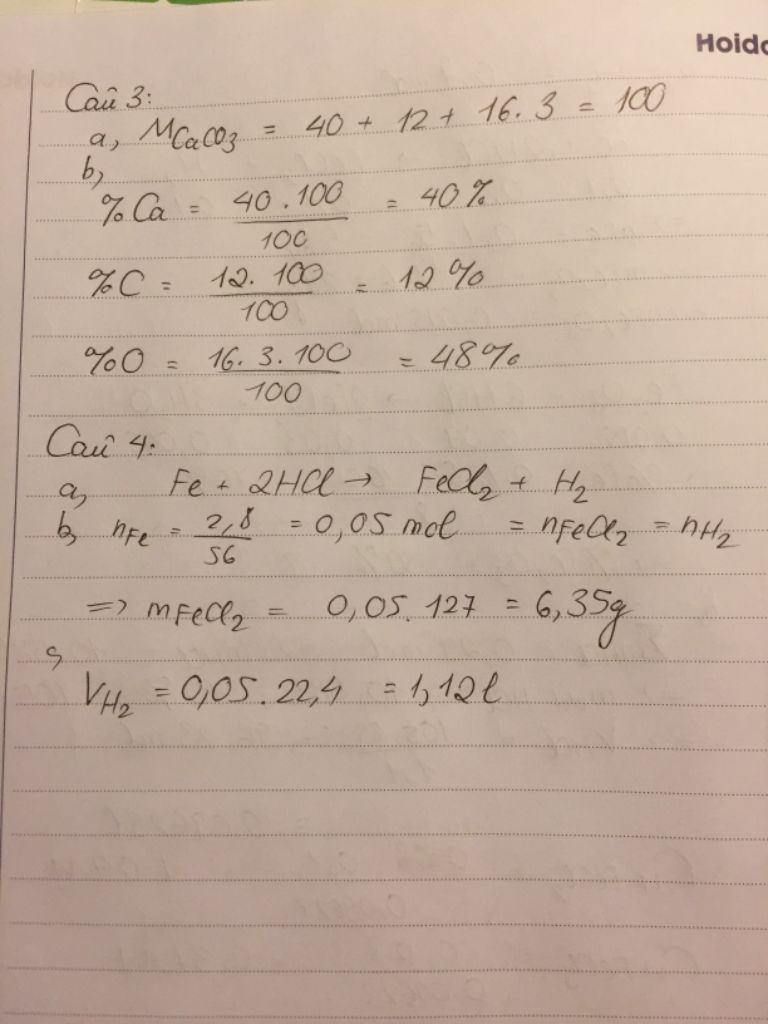 Hoido
Câu 3:
a, MCaCO3 = 40 + 12 + 16.3 = 100
b,
%Ca = 40.100 / 100 = 40%
%C = 12.100 / 100 = 12%
%O = 16.3.100 / 100 = 48%
Câu 4:
a, Fe + 2HCl → FeCl2 + H2
b, nFe = 2,8 / 56 = 0,05 mol = nFeCl2 = nH2
=> mFeCl2 = 0,05.127 = 6,35g
c,
VH2 = 0,05.22,4 = 1,12l